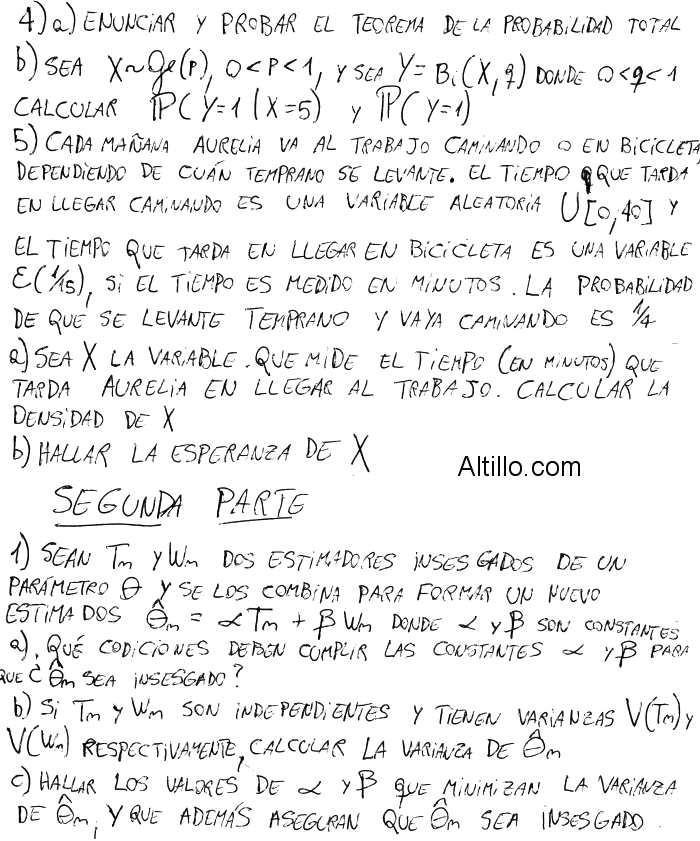 4) a) ENUNCIAR Y PROBAR EL TEOREMA DE LA PROBABILIDAD TOTAL
b) SEA X~Ge(p), 0<p<1, Y SEA Y=Bi(X,q) DONDE 0<q<1
CALCULAR P(Y=1|X=5) Y P(Y=1)
5) CADA MAÑANA AURELIA VA AL TRABAJO CAMINANDO O EN BICICLETA,
DEPENDIENDO DE CUÁN TEMPRANO SE LEVANTE. EL TIEMPO QUE TARDA
EN LLEGAR CAMINANDO ES UNA VARIABLE ALEATORIA U[0,40] Y
EL TIEMPO QUE TARDA EN LLEGAR EN BICICLETA ES UNA VARIABLE
ε(1/15), SI EL TIEMPO ES MEDIDO EN MINUTOS. LA PROBABILIDAD
DE QUE SE LEVANTE TEMPRANO Y VAYA CAMINANDO ES 1/4
a) SEA X LA VARIABLE. QUE MIDE EL TIEMPO (EN MINUTOS) QUE
TARDA AURELIA EN LLEGAR AL TRABAJO. CALCULAR LA
DENSIDAD DE X
b) HALLAR LA ESPERANZA DE X
Altillo.com
SEGUNDA PARTE
1) SEAN Tm Y Wm DOS ESTIMADORES INSESGADOS DE UN
PARÁMETRO θ Y SE LOS COMBINA PARA FORMAR UN NUEVO
ESTIMADOS θ̂m = αTm + βWm DONDE α Y β SON CONSTANTES
a). QUÉ CODICIONES DEBEN CUMPLIR LAS CONSTANTES α Y β PARA
QUE ¿ θ̂m SEA INSESGADO?
b) SI Tm Y Wm SON INDEPENDIENTES Y TIENEN VARIANZAS V(Tm) Y
V(Wm) RESPECTIVAMENTE, CALCULAR LA VARIANZA DE θ̂m
c) HALLAR LOS VALORES DE α Y β QUE MINIMIZAN LA VARIANZA
DE θ̂m, Y QUE ADEMÁS ASEGURAN QUE θ̂m SEA INSESGADO.